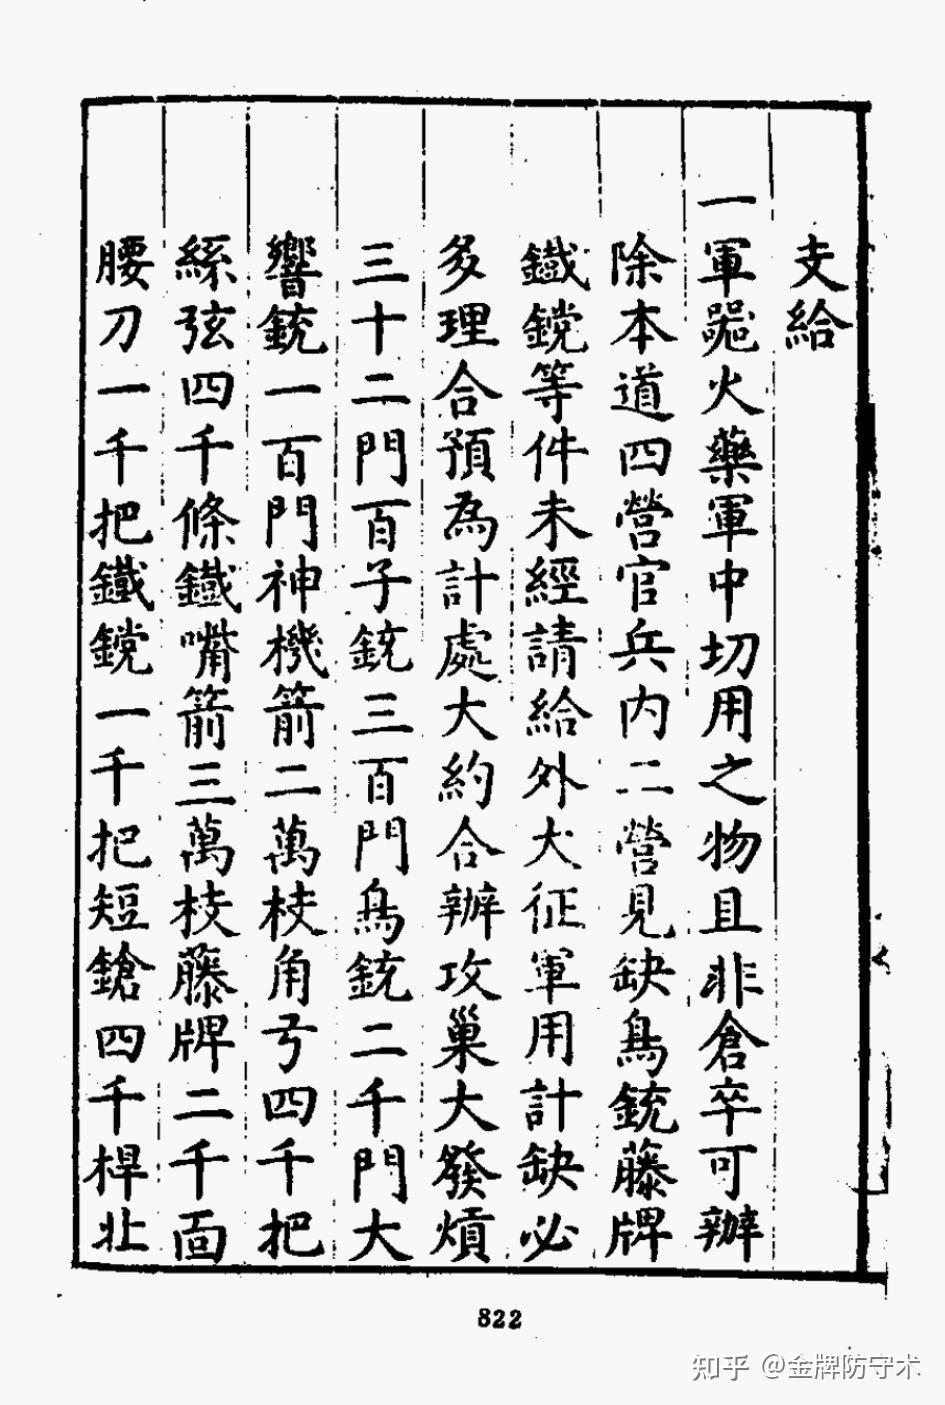 支給
一軍器火藥軍中切用之物且非倉卒可辦
除本道四營官兵内二營見缺鳥銃藤牌
鐵鎲等件未經請給外大征軍用計缺必
多理合預為計處大約合辦攻巢大發熕
三十二門百子銃三百門鳥銃二千門大
響銃一百門神機箭二萬枝角弓四千把
絲弦四千條鐵嘴箭三萬枝藤牌二千面
腰刀一千把鐵鎲一千把短鎗四千桿北
822
知乎 @金牌防守术